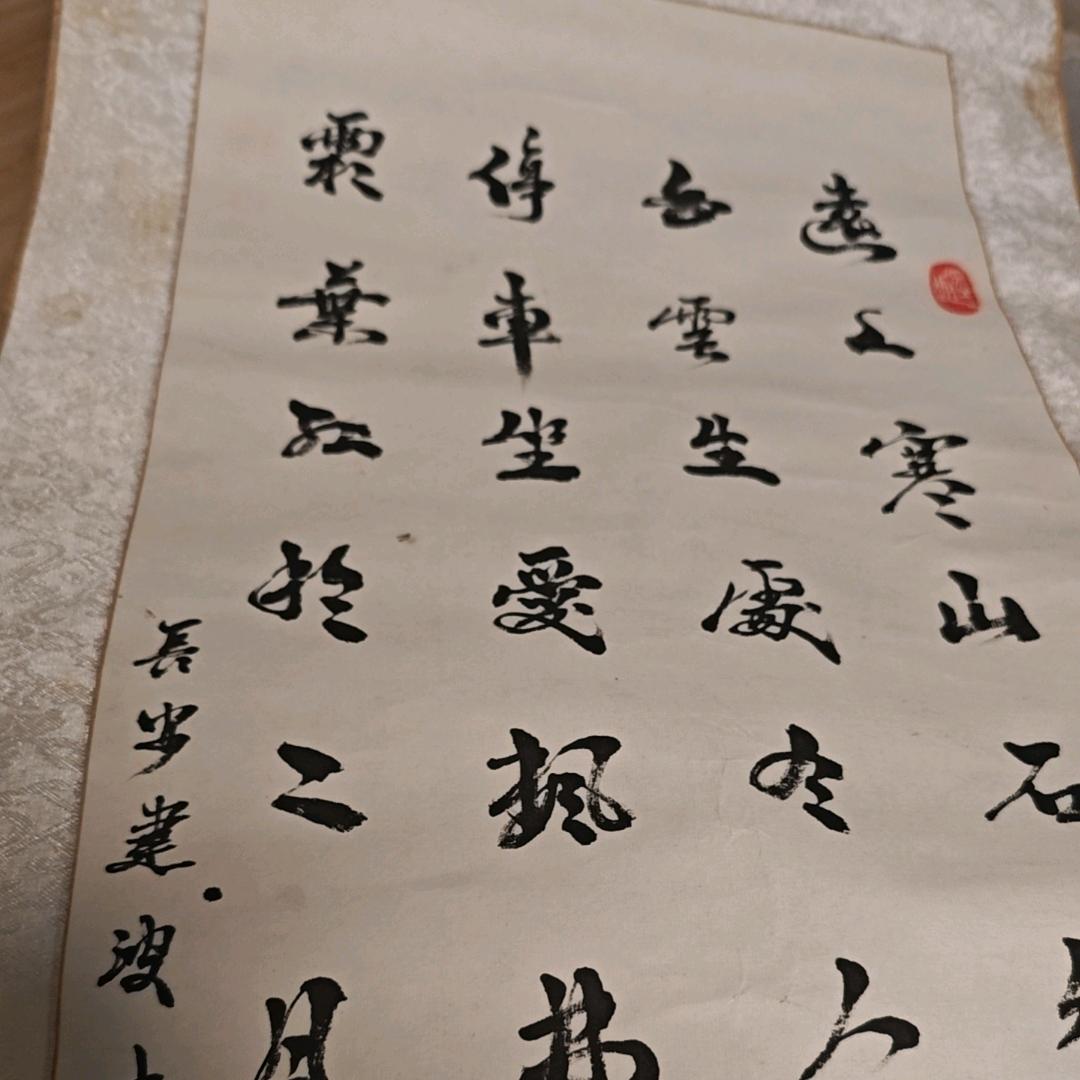 遠上寒山石
白雲生處有人
停車坐愛楓林
霜葉紅於二月
長安